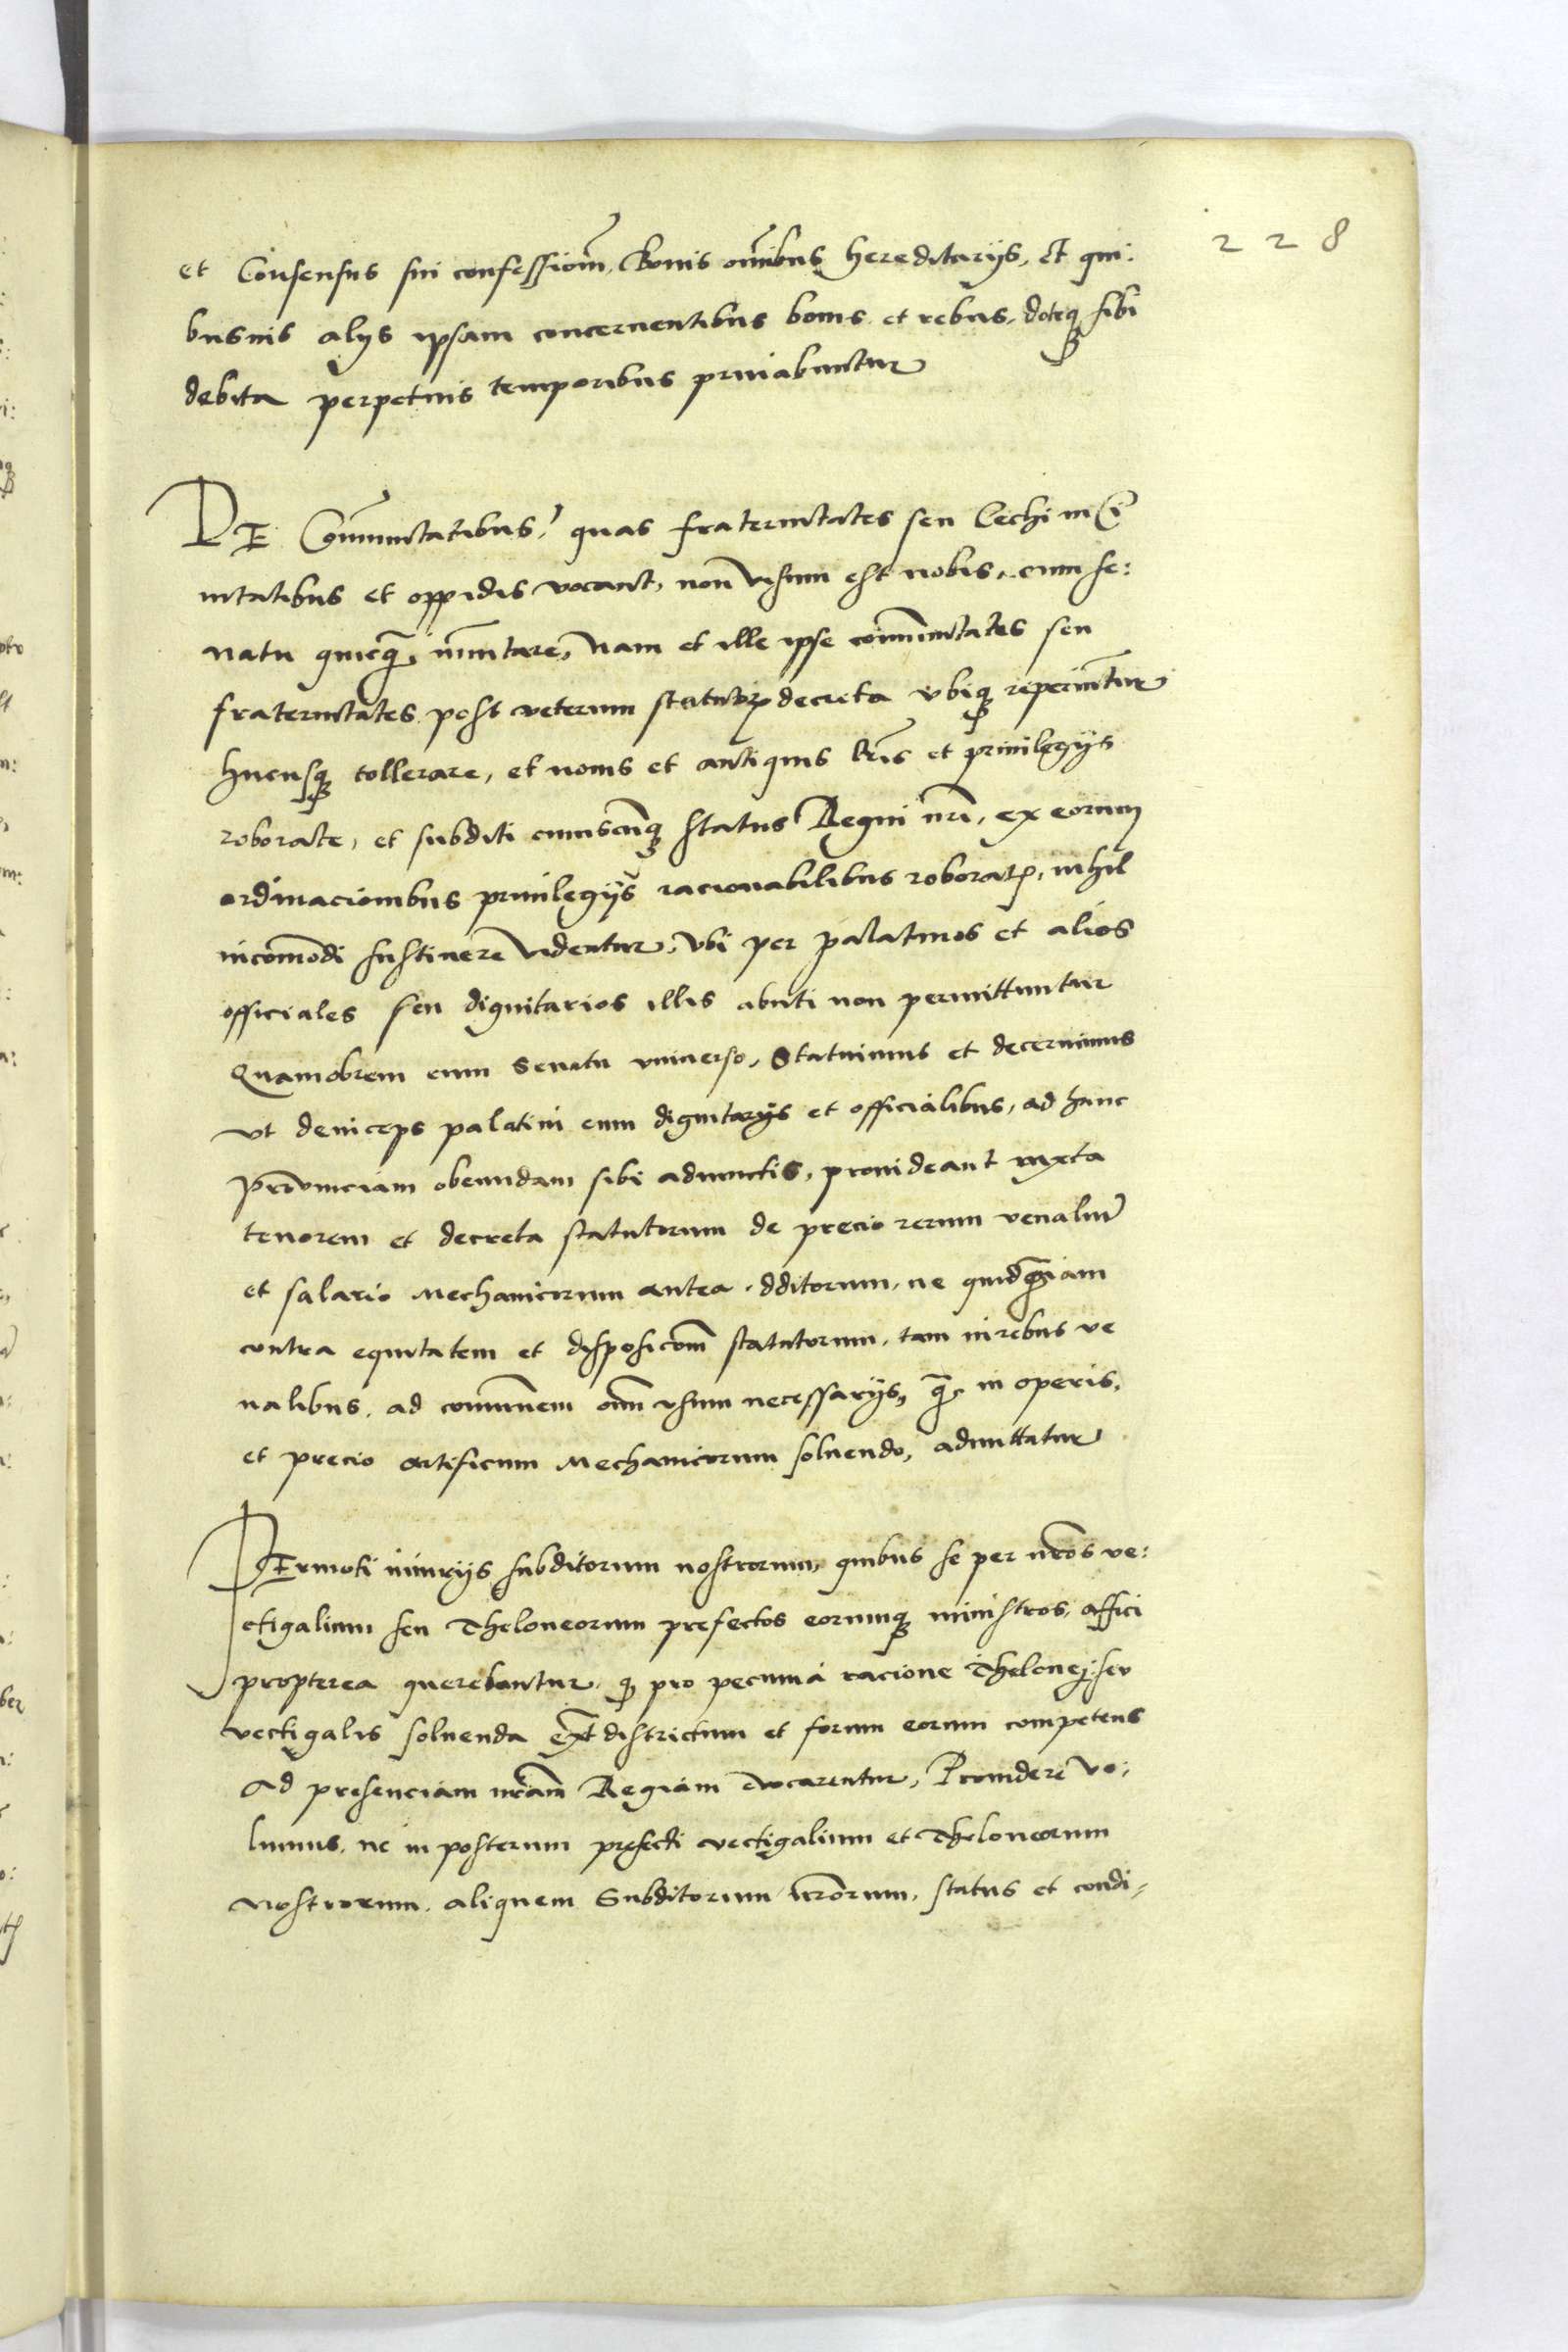 228
et Consensus sui confessiom̃, Bonis om̃ibus hereditarijs, Et qui:
busuis alys ipsam concernentibus bonis et rebus, doteq; sibi
debita perpetuis temporibus priuabuntur
DE Com̃unitatibus, quas fraternitates seu Cechi in Ci
uitatibus et oppidis vocant, non visum est nobis, cum se:
natu quicq̃ im̃utare, Nam et ille ipse com̃unitates seu
fraternitates post veterum statutorꝝ decreta vbiq; reperiũtur
hucusq; tollerate, et nouis et antiquis lr̃is et priuilegijs
roborate, et subditi cuiuscũq; status Regni nr̃i, ex eorum
ordinacionibus priuilegijs racionabilibus roboratꝭ, nihil
incom̃odi sustinere videntur, vbi per palatinos et alios
officiales seu dignitarios illis abuti non permittuntur
Quamobrem cum Senatu vniuerso, Statuimus et decernimus
vt deinceps palatini cum dignitarijs et officialibus, ad hanc
prouinciam obeundam sibi adiunctis, prouideant iuxta
tenorem et decreta statutorum de precio rerum venaliũ
et salario Mechanicorum antea ędditorum, ne quidq̃iam
contra equitatem et disposicõm statutorum, tam in rebus ve
nalibus, ad com̃unem om̃ vsum necessarijs, q̃ in operis,
et precio artificum Mechanicorum soluendo, admittatur
PErmoti iniurijs subditorum nostrorum, quibus se per nr̃os ve:
ctigalium seu Theloneorum prefectos eorumq; ministros, affici
propterea querebantur, q; pro pecunia racione Thelonej seu
vectigalis soluenda ext̃ districtum et forum eorum competens
Ad presenciam nr̃am Regiam euocarentur, Prouidere vo:
lumus, ne in posterum prefecti vectigalium et Theloneorum
nostrorum, aliquem Subditorum nr̃orum, status et condi-